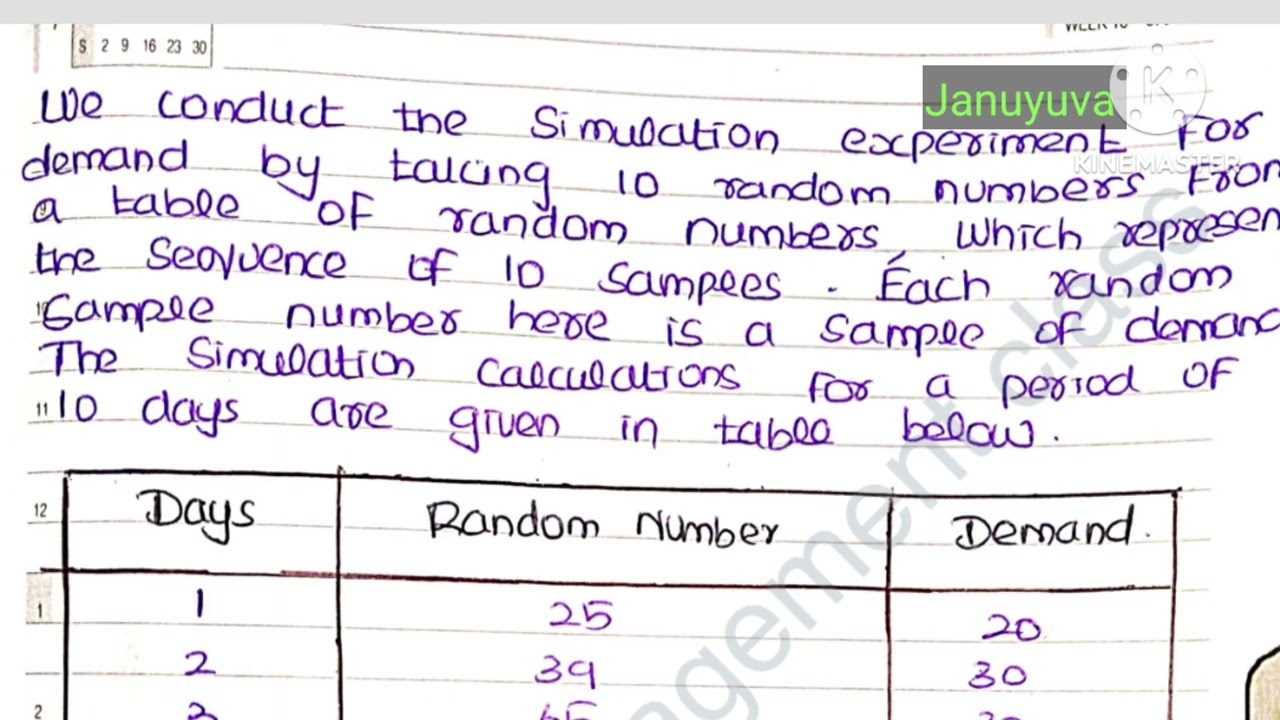 S 2 9 16 23 30
Januyuva
KINEMASTER
We conduct the Simulation experiment For
demand by taking 10 random numbers From
a table of random numbers, which represen
the Sequence of 10 Samples. Each random
Sample number here is a sample of demand
The Simulation Calculations for a period of
11 10 days are given in table below.
12 Days Random Number Demand.
1 1 25 20
2 39 30
2